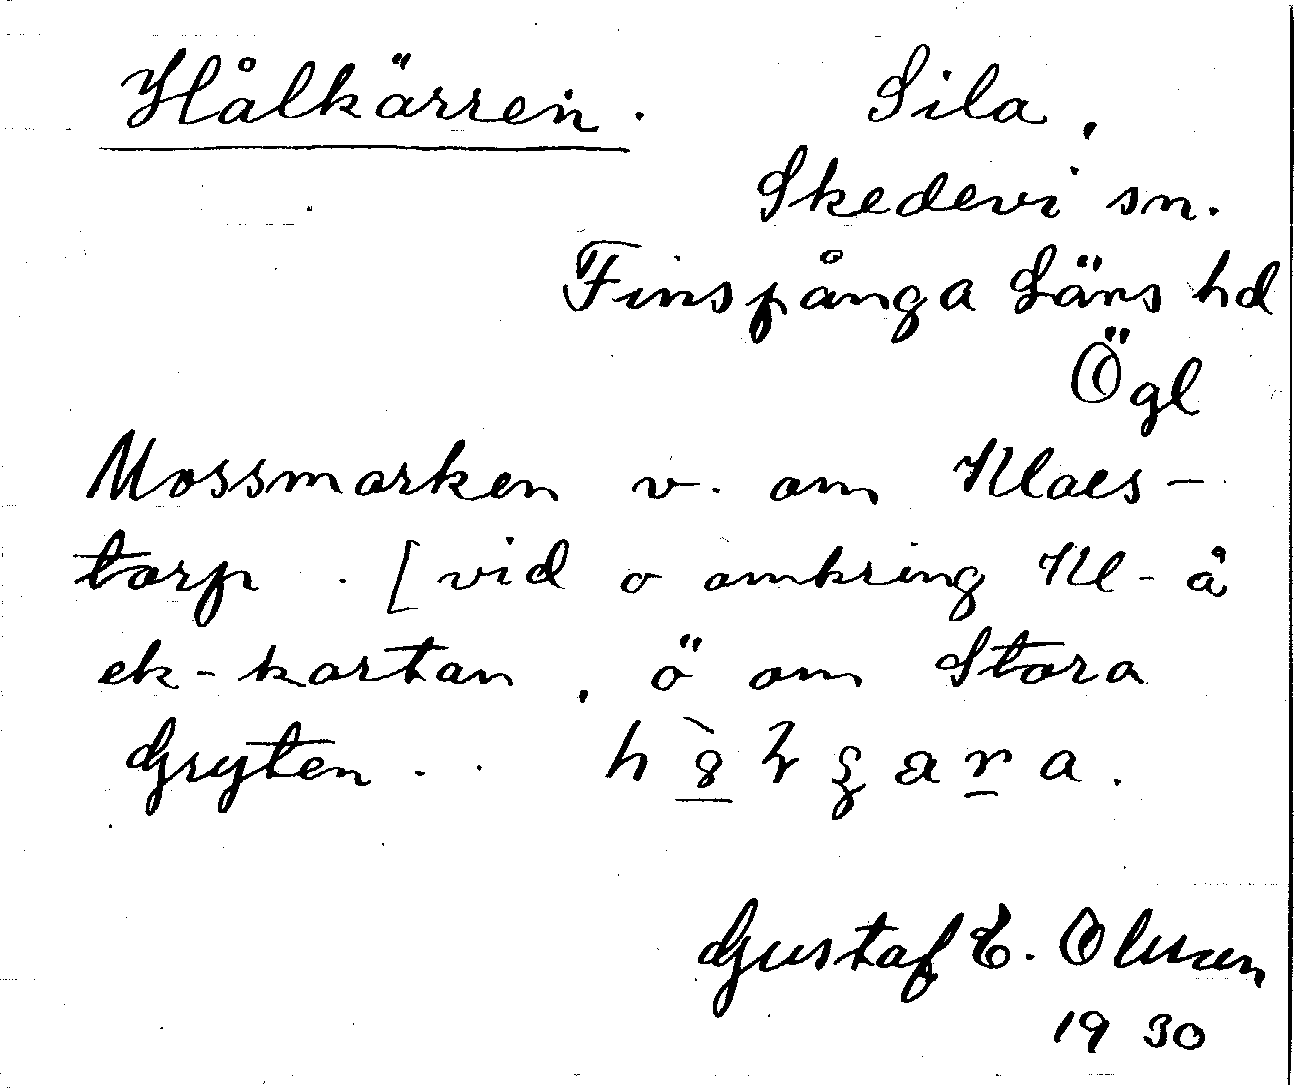 Hålkärren. Sila,
Skedevi sn.
Finspånga Läns hd
Ögl
Mossmarken v. om Klaes-
torp. [vid o omkring Kl- å
ek-kartan, ö om Stora
Gryten.
Gustaf E. Olsson
1930